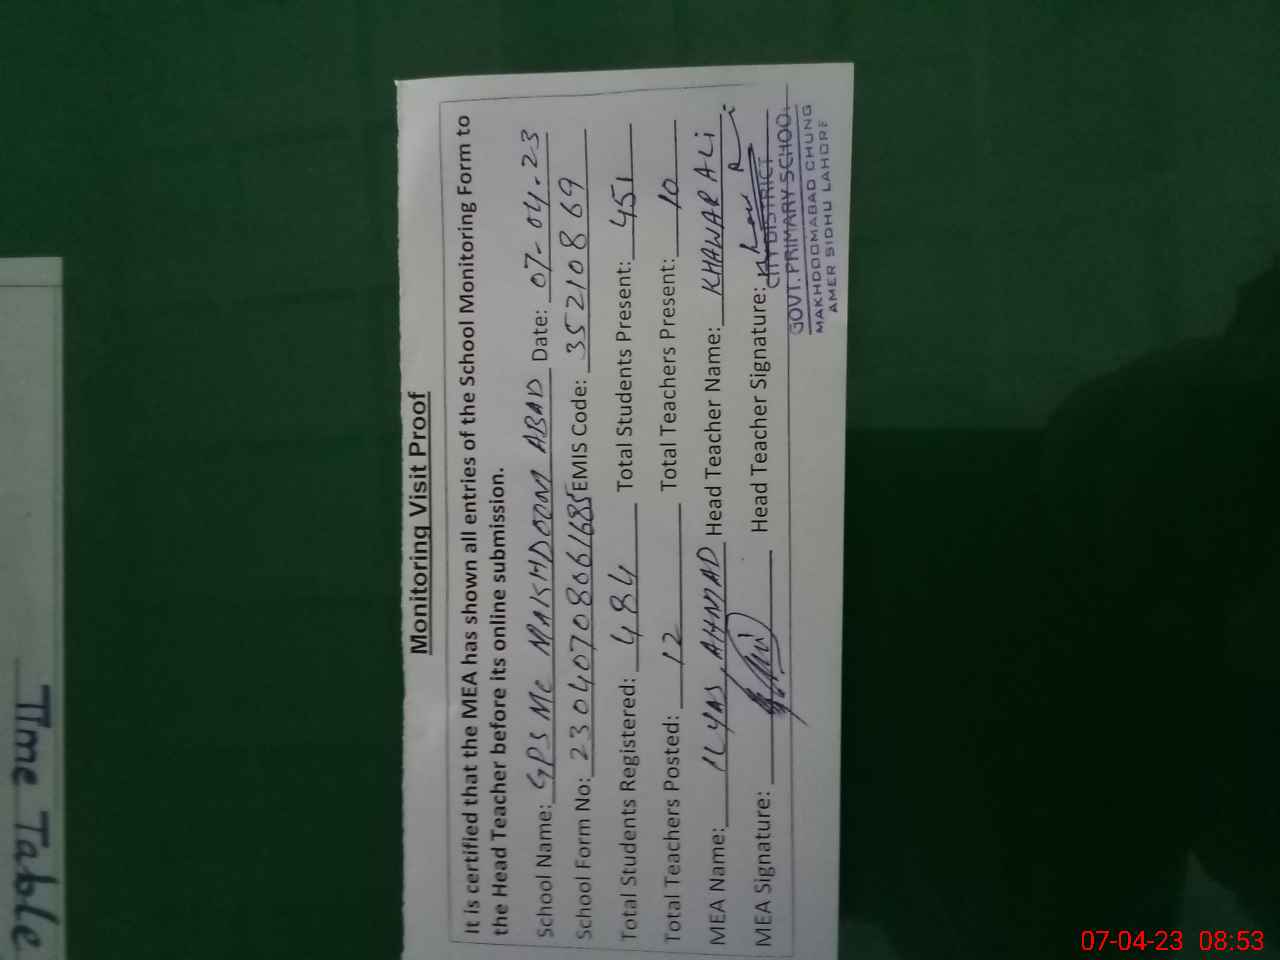 Time Table
Monitoring Visit Proof
It is certified that the MEA has shown all entries of the School Monitoring Form to
the Head Teacher before its online submission.
School Name: GPS MC MAKHDOOM ABAD Date: 07-04-23
School Form No: 230407080661685 EMIS Code: 35210869
Total Students Registered: 484 Total Students Present: 451
Total Teachers Posted: 12 Total Teachers Present: 10
MEA Name: ILYAS AHMAD Head Teacher Name: KHAWAR ALI
MEA Signature: Head Teacher Signature:
CITY DISTRICT
GOVT. PRIMARY SCHOOL
MAKHDOOMABAD CHUNG
AMER SIDHU LAHORE
07-04-23 08:53